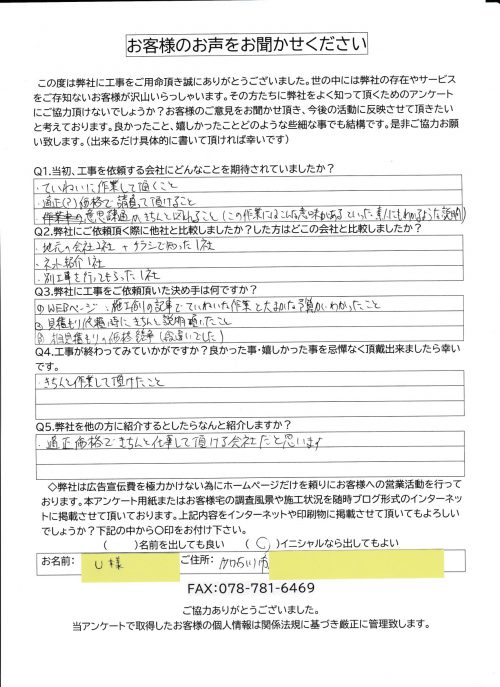 お客様のお声をお聞かせください
この度は弊社に工事をご用命頂き誠にありがとうございました。世の中には弊社の存在やサービス
をご存知ないお客様が沢山いらっしゃいます。その方たちに弊社をよく知って頂くためのアンケート
にご協力頂けないでしょうか？お客様のご意見をお聞かせ頂き、今後の活動に反映させて頂きたい
と考えております。良かったこと、嬉しかったことどのような些細な事でも結構です。是非ご協力お願
い致します。（出来るだけ具体的に書いて頂ければ幸いです）
Q1.当初、工事を依頼する会社にどんなことを期待されていましたか？
・ていねいに作業して頂くこと
・適正(?)価格で請負って頂けること
意思疎通がきちんととれること（この作業にはこんな意味があるといった素人にもわかるような説明）
Q2.弊社にご依頼頂く際に他社と比較しましたか？した方はどこの会社と比較しましたか？
・地元の会社2社 + チラシで知った1社
・ネット紹介1社
・別工事を行ってもらった1社
Q3.弊社に工事をご依頼頂いた決め手は何ですか？
①WEBページ：施工例の記事でていねいな作業と大まかな予算がわかったこと
②見積もり依頼時にきちんと説明頂いたこと
③相見積もりの価格
Q4.工事が終わってみていかがですか？良かった事・嬉しかった事を忌憚なく頂戴出来ましたら幸い
です。
・きちんと作業して頂けたこと
Q5.弊社を他の方に紹介するとしたらなんと紹介しますか？
・適正価格できちんと仕事して頂ける会社だと思います
◇弊社は広告宣伝費を極力かけない為にホームページだけを頼りにお客様への営業活動を行って
おります。本アンケート用紙またはお客様宅の調査風景や施工状況を随時ブログ形式のインターネッ
トに掲載させて頂いております。上記内容をインターネットや印刷物に掲載させて頂いてもよろしい
でしょうか？下記の中から〇印をお付け下さい。
（　　）名前を出しても良い　（〇）イニシャルなら出してもよい
お名前： U様　ご住所： 加古川市
FAX：078-781-6469
ご協力ありがとうございました。
当アンケートで取得したお客様の個人情報は関係法規に基づき厳正に管理致します。